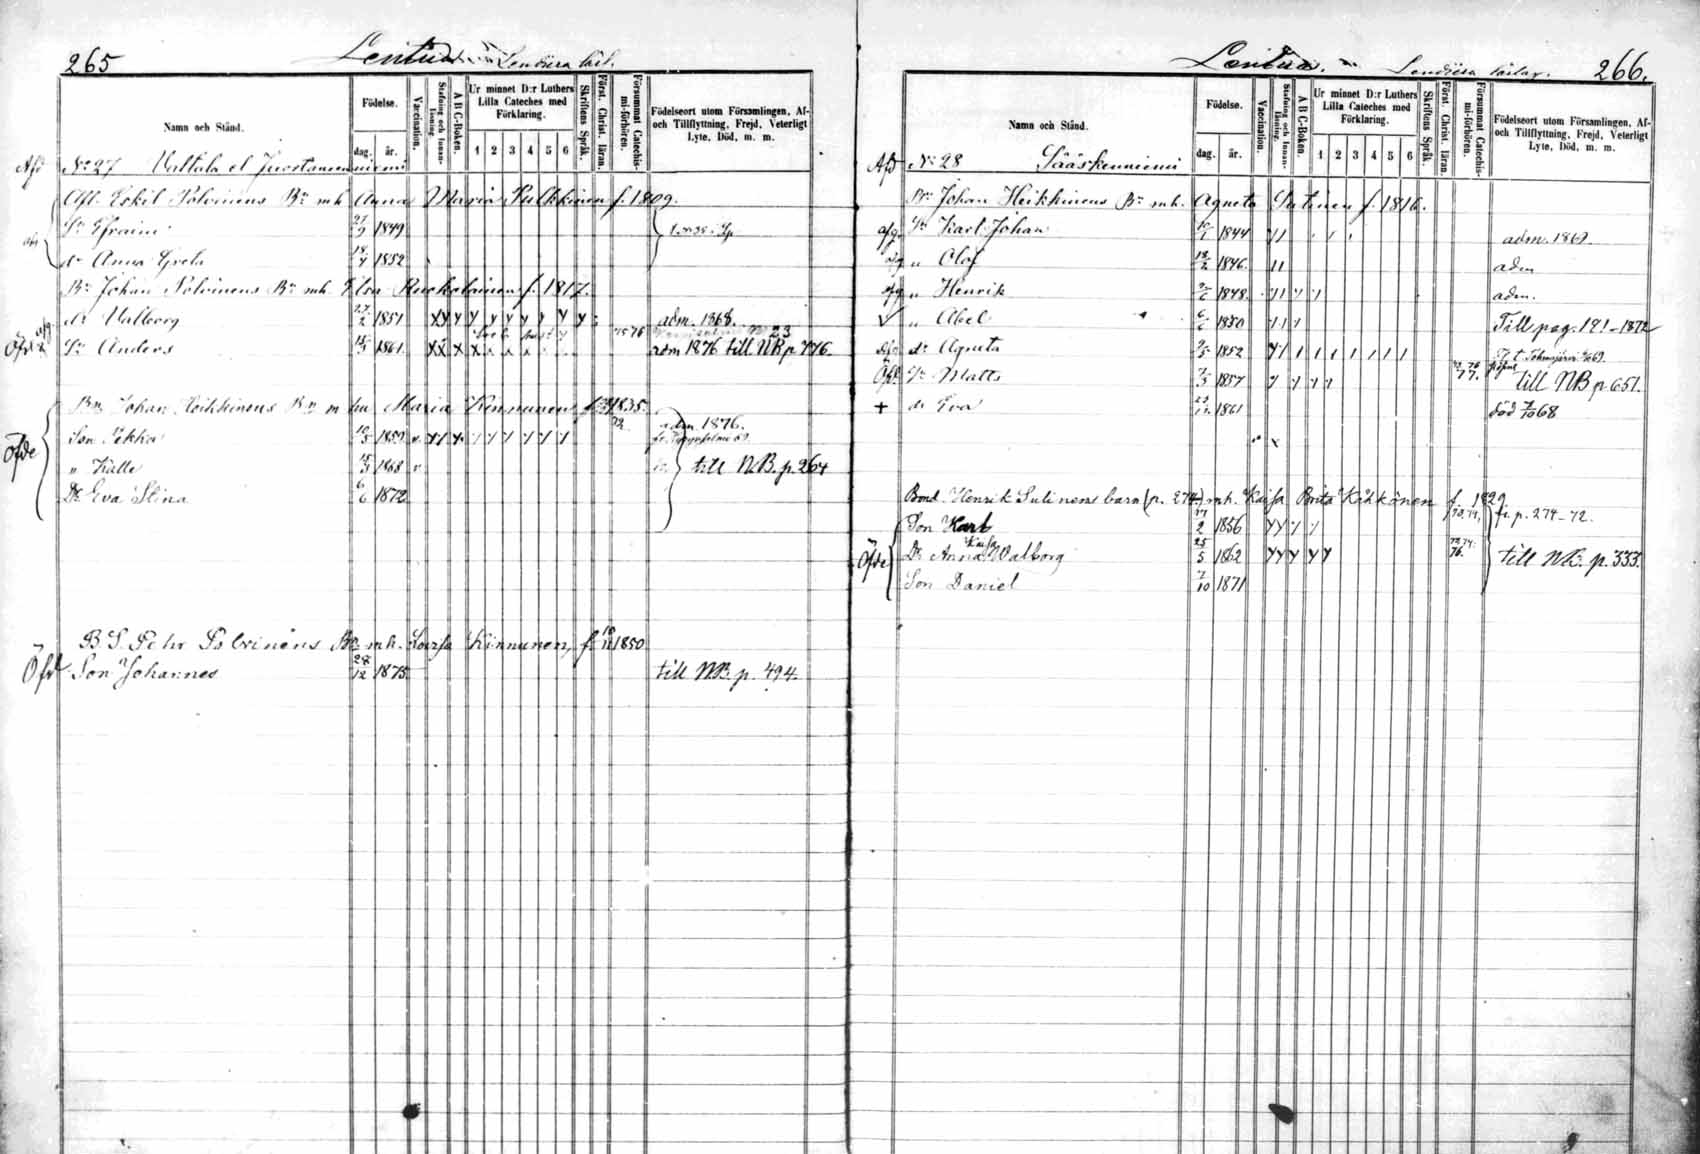 265
Lentua Lendiera
Namn och Stånd.
Födelse.
dag. år.
Vaccination.
Stafning och Innanläsning.
A B C-Boken.
Ur minnet D:r Luthers Lilla Cateches med Förklaring.
1 2 3 4 5 6
Skriftens Språk.
Först. Christ. läran.
Försummat Catechismi-förhören.
Födelseort utom Församlingen, Af- och Tillflyttning, Frejd, Veterligt Lyte, Död, m. m.
Afd No 27 Valtala el
Afl. Eskil Polvinens Bn mh Anna Maria Pulkkinen f. 1809.
Sn Efraim 1849
dr Anna Greta 18/4 1852
Bn Johan Polvinens Bn mh. f. 1817.
dr Valborg 27/2 1851 adm. 1868.
Öfd Sn Anders 15/3 1861 75 76 adm 1876 till NB p. 776.
Bn Johan Heikkinens Bn m hu Maria Kinnunen f. 1835.
Öfde Son Pekka 10/3 1859 adm. 1876.
" Kalle 15/3 1868 till NB. p. 264
Dr Eva Stina 6/6 1872
B S. Pehr Polvinens Bn mh. Lovisa Kinnunen, f. 1850
Öfd Son Johannes 28/12 1875 till NB. p. 494.
Lentua. Lendiera 266.
Namn och Stånd.
Födelse.
dag. år.
Vaccination.
Stafning och Innanläsning.
A B C-Boken.
Ur minnet D:r Luthers Lilla Cateches med Förklaring.
1 2 3 4 5 6
Skriftens Språk.
Först. Christ. läran.
Försummat Catechismi-förhören.
Födelseort utom Församlingen, Af- och Tillflyttning, Frejd, Veterligt Lyte, Död, m. m.
Afd No 28 Sääskenniemi
Bn Johan Heikkinens Bn mh. Agneta Sutinen f. 1816.
Sn Karl Johan 1844 adm. 1861.
" Olof 1846. adm
" Henrik 1848. adm.
" Abel 1850 Till pag. 191-1872
dr Agneta 1852
Öfd. Sn Matts 1857 till NB p. 651.
+ dr Eva 1861 död 7/10 68
Bond. Henrik Sutinens barn (p. 274.) mh. Kaisa Brita Kähkönen f. 1829
Son Karl 1856 fr. p. 274-72.
Öfde Dr Anna Kaisa Walborg 25/5 1862 till NB. p. 333.
Son Daniel 7/10 1871